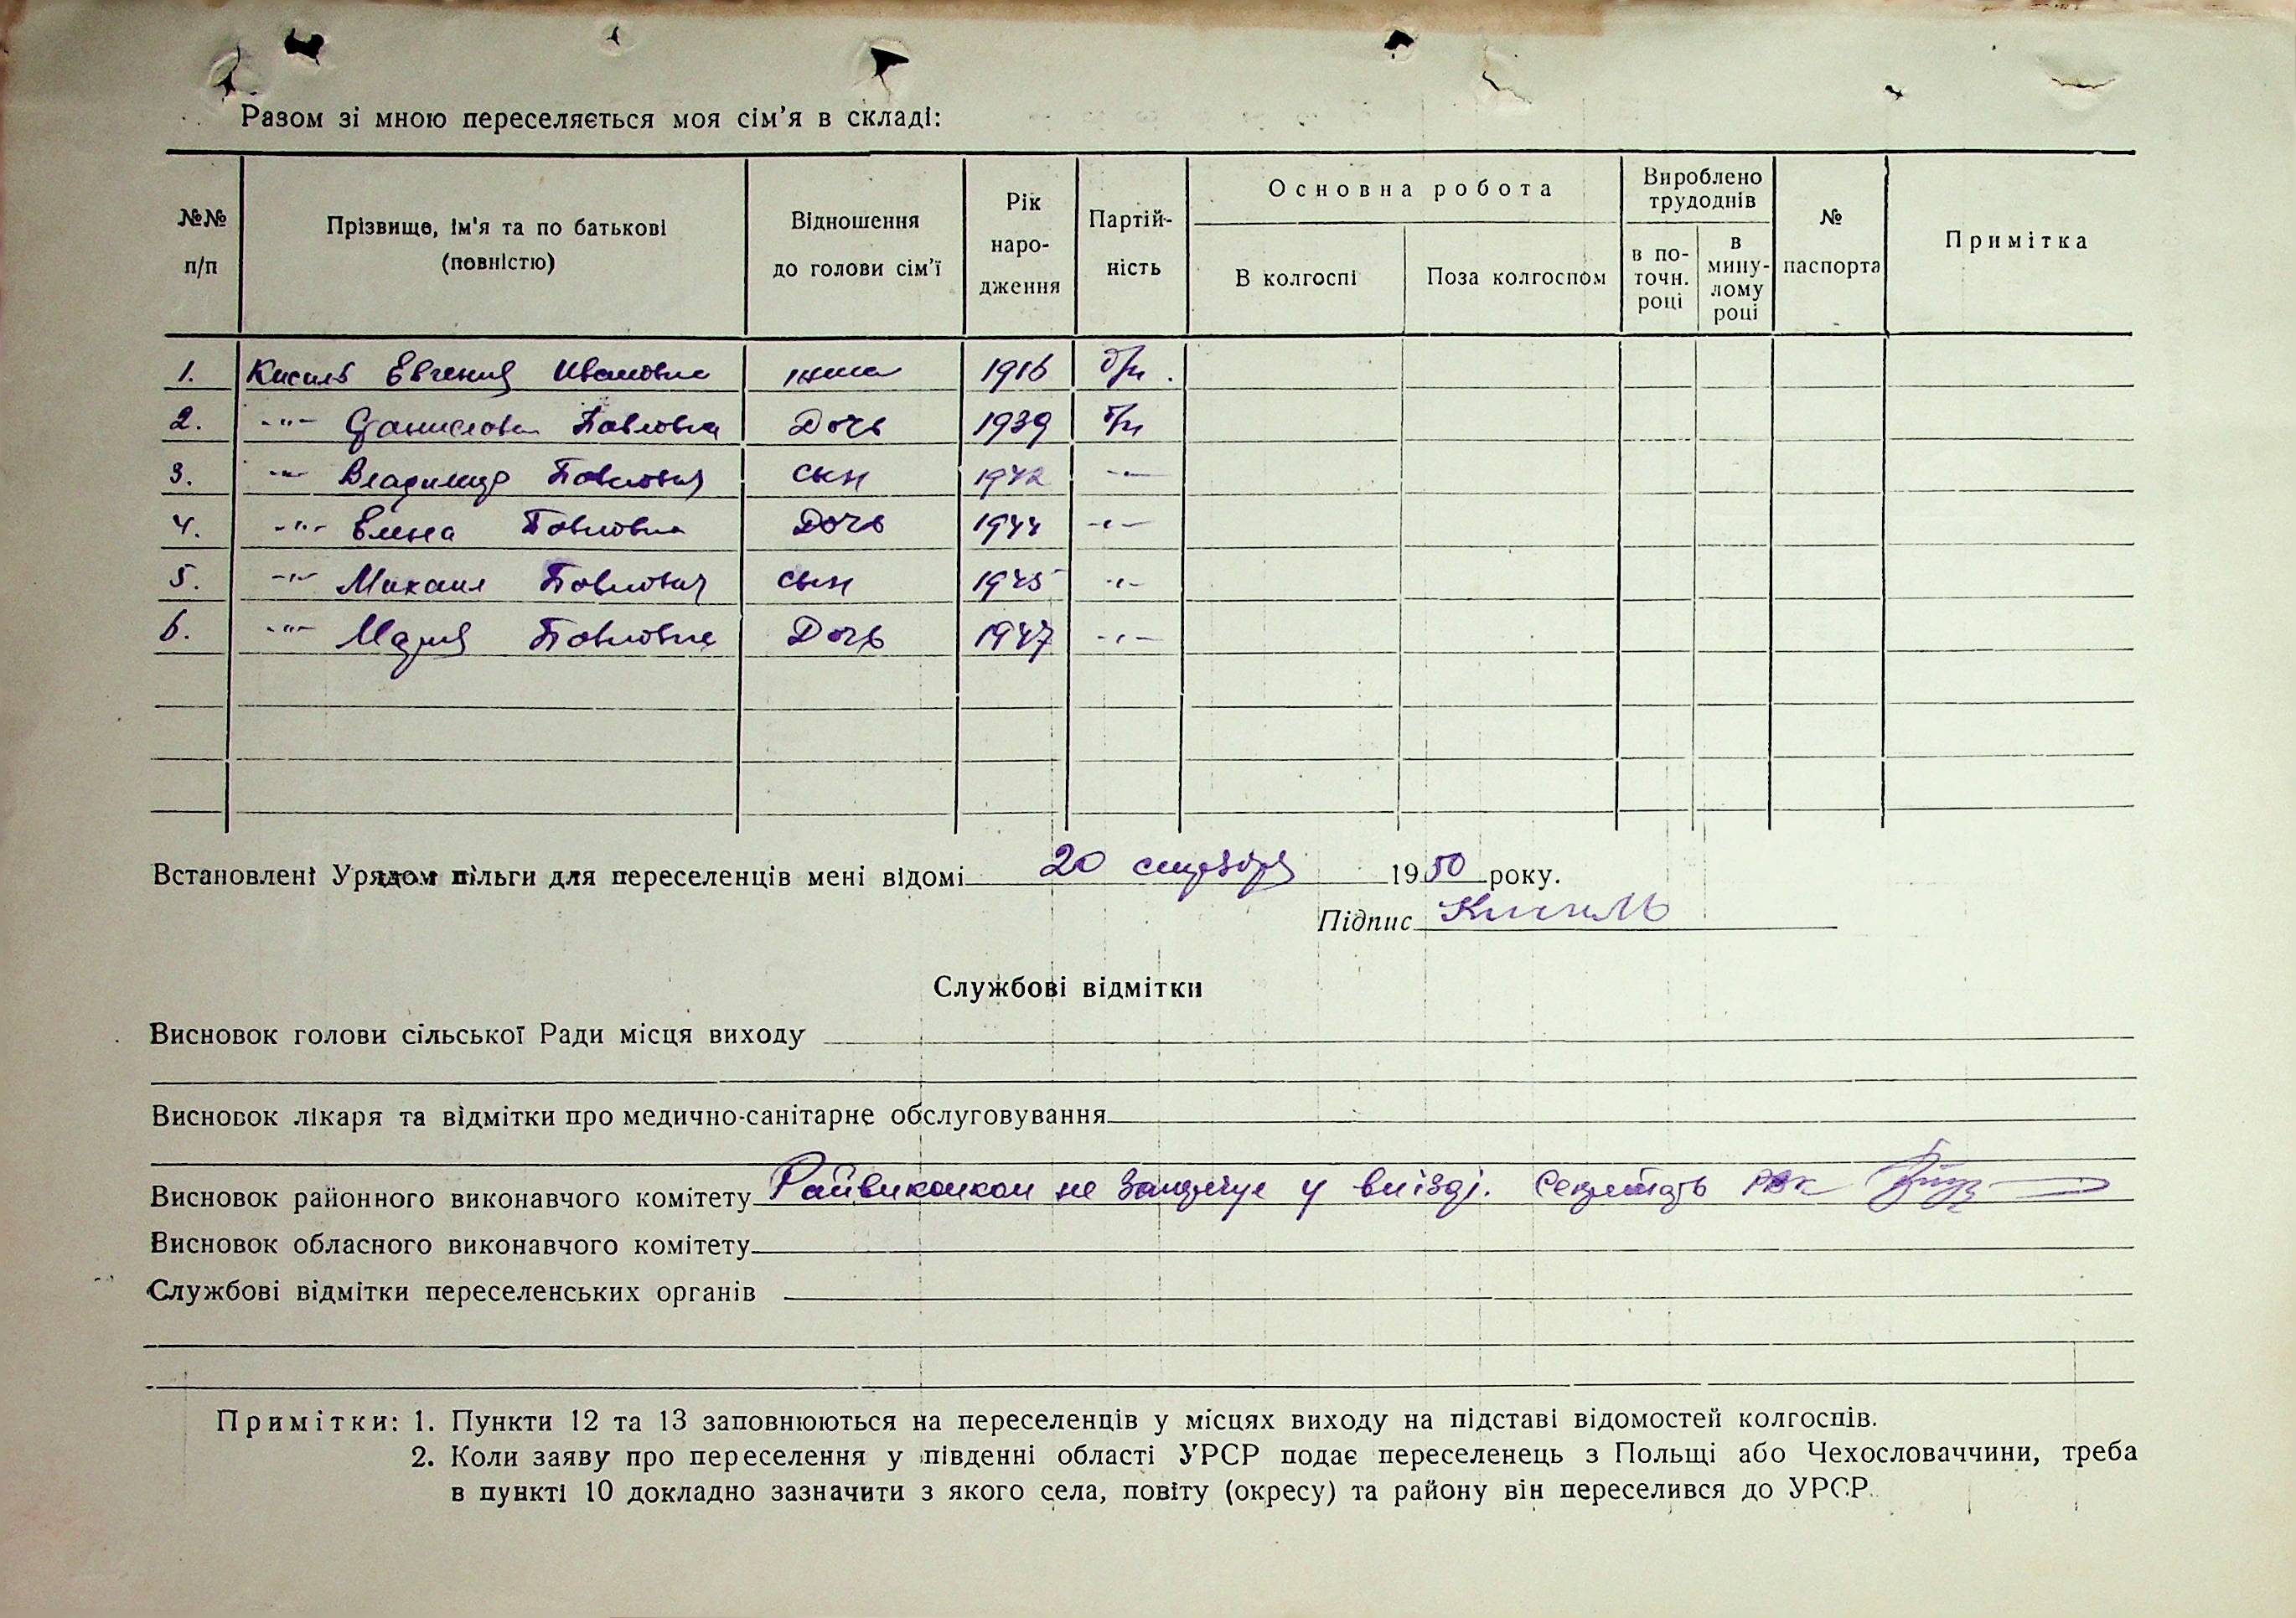 Разом зі мною переселяється моя сім'я в складі:
№№ п/п
Прізвище, ім'я та по батькові (повністю)
Відношення до голови сім'ї
Рік народження
Партійність
Основна робота
В колгоспі
Поза колгоспом
Вироблено трудоднів
в поточн. році
в минулому році
№ паспорта
Примітка
1. Кисиль Евгения Ивановна жена 1916 б/п.
2. -"- Станислава Павловна Дочь 1939 б/п
3. -"- Владимир Павлович сын 1942 -"-
4. -"- Елена Павловна Дочь 1944 -"-
5. -"- Михаил Павлович сын 1945 -"-
6. -"- Мария Павловна Дочь 1947 -"-
Встановлені Урядом пільги для переселенців мені відомі 20 1950 року.
Підпис Кисиль
Службові відмітки
Висновок голови сільської Ради місця виходу
Висновок лікаря та відмітки про медично-санітарне обслуговування
Висновок районного виконавчого комітету Райвиконком не заперечує у виїзді. Секретарь РВК
Висновок обласного виконавчого комітету
Службові відмітки переселенських органів
Примітки: 1. Пункти 12 та 13 заповнюються на переселенців у місцях виходу на підставі відомостей колгоспів.
2. Коли заяву про переселення у південні області УРСР подає переселенець з Польщі або Чехословаччини, треба
в пункті 10 докладно зазначити з якого села, повіту (окресу) та району він переселився до УРСР.